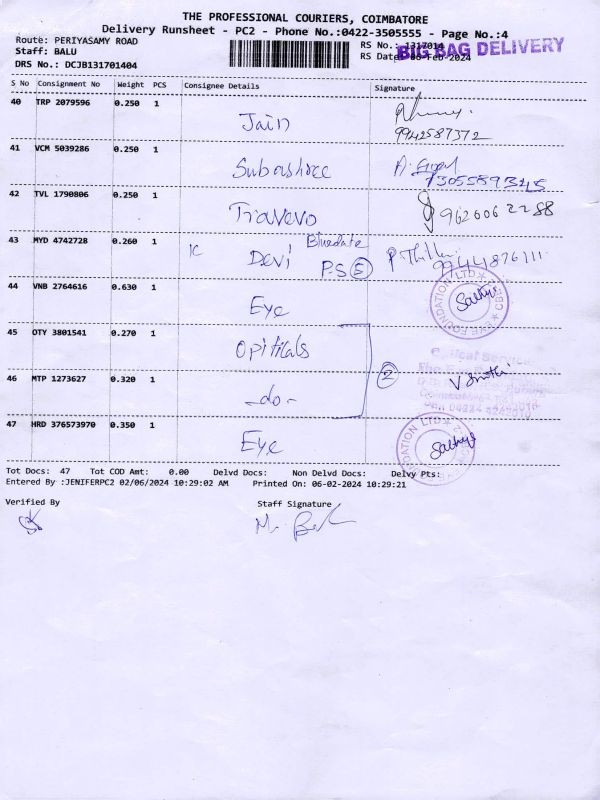 THE PROFESSIONAL COURIERS, COIMBATORE
Delivery Runsheet - PC2 - Phone No.:0422-3505555 - Page No.:4
Route: PERIYASAMY ROAD
RS No.: 1317014
BIG BAG DELIVERY
Staff: BALU
RS Date: 06-Feb-2024
DRS No.: DCJB131701404
S No Consignment No Weight PCS Consignee Details Signature
40 TRP 2079596 0.250 1
Jain
9942587372
41 VCM 5039286 0.250 1
Subashree
42 TVL 1790806 0.250 1
Travevo
9626062288
43 MYD 4742728 0.260 1
Devi
Bluedate
P.S 5
44 VNB 2764616 0.630 1
Eye
FOUNDATION LTD
Sathya
45 OTY 3801541 0.270 1
Opiticals
46 MTP 1273627 0.320 1
-do-
2
47 HRD 376573970 0.350 1
Eye
Sathya
Tot Docs: 47 Tot COD Amt: 0.00 Delvd Docs: Non Delvd Docs: Delvy Pts:
Entered By :JENIFERPC2 02/06/2024 10:29:02 AM Printed On: 06-02-2024 10:29:21
Verified By Staff Signature